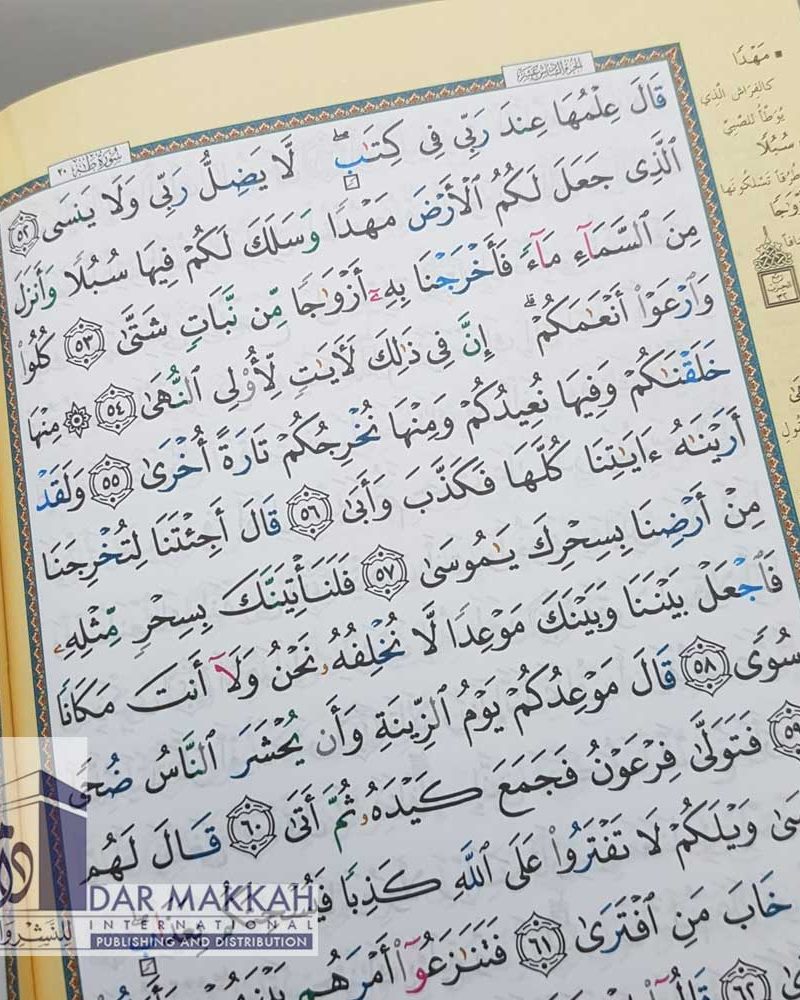 الجزء السادس عشر
سورة طه ٢٠
قَالَ عِلْمُهَا عِندَ رَبِّي فِي كِتَٰبٍ ۖ لَّا يَضِلُّ رَبِّي وَلَا يَنسَى ٥٢
ٱلَّذِي جَعَلَ لَكُمُ ٱلْأَرْضَ مَهْدًا وَسَلَكَ لَكُمْ فِيهَا سُبُلًا وَأَنزَلَ
مِنَ ٱلسَّمَآءِ مَآءً فَأَخْرَجْنَا بِهِۦٓ أَزْوَٰجًا مِّن نَّبَاتٍ شَتَّىٰ ٥٣ كُلُوا۟
وَٱرْعَوْا۟ أَنْعَٰمَكُمْ ۗ إِنَّ فِي ذَٰلِكَ لَءَايَٰتٍ لِّأُو۟لِي ٱلنُّهَىٰ ٥٤ ۞ مِنْهَا
خَلَقْنَٰكُمْ وَفِيهَا نُعِيدُكُمْ وَمِنْهَا نُخْرِجُكُمْ تَارَةً أُخْرَىٰ ٥٥ وَلَقَدْ
أَرَيْنَٰهُ ءَايَٰتِنَا كُلَّهَا فَكَذَّبَ وَأَبَىٰ ٥٦ قَالَ أَجِئْتَنَا لِتُخْرِجَنَا
مِنْ أَرْضِنَا بِسِحْرِكَ يَٰمُوسَىٰ ٥٧ فَلَنَأْتِيَنَّكَ بِسِحْرٍ مِّثْلِهِۦ
فَٱجْعَلْ بَيْنَنَا وَبَيْنَكَ مَوْعِدًا لَّا نُخْلِفُهُۥ نَحْنُ وَلَآ أَنتَ مَكَانًا
سُوًى ٥٨ قَالَ مَوْعِدُكُمْ يَوْمُ ٱلزِّينَةِ وَأَن يُحْشَرَ ٱلنَّاسُ ضُحًى
٥٩ فَتَوَلَّىٰ فِرْعَوْنُ فَجَمَعَ كَيْدَهُۥ ثُمَّ أَتَىٰ ٦٠ قَالَ لَهُم
وَيْلَكُمْ لَا تَفْتَرُوا۟ عَلَى ٱللَّهِ كَذِبًا
خَابَ مَنِ ٱفْتَرَىٰ ٦١ فَتَنَٰزَعُوٓا۟ أَمْرَهُم
٦٢
مَهْدًا
كالفراش الذي
يُوطّأ للصبي
سُبُلًا
طرقًا تسلكونها
ربع
الحزب
٣٢
DAR MAKKAH
INTERNATIONAL
PUBLISHING AND DISTRIBUTION